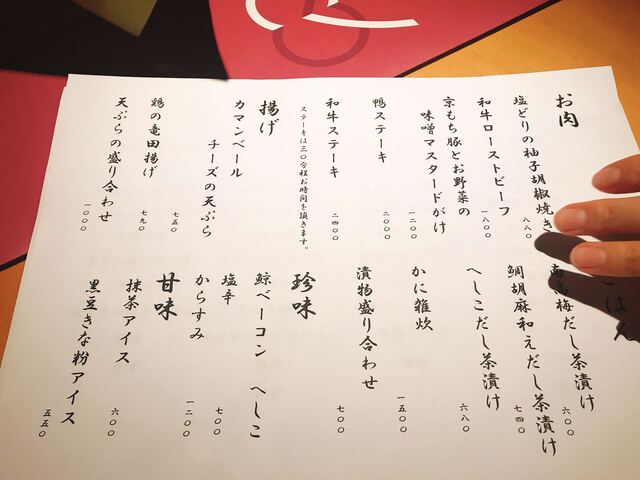 お肉
塩どりの柚子胡椒焼き
八八〇
和牛ローストビーフ
一八〇〇
京もち豚とお野菜の
味噌マスタードがけ
一二〇〇
鴨ステーキ
二〇〇〇
和牛ステーキ
二四〇〇
ステーキは三〇分程お時間を頂きます。
揚げ
カマンベール
チーズの天ぷら
七五〇
鶏の竜田揚げ
七九〇
天ぷらの盛り合わせ
一〇〇〇
ごはん
南高梅だし茶漬け
六〇〇
鯛胡麻和えだし茶漬け
七四〇
へしこだし茶漬け
六八〇
かに雑炊
一五〇〇
漬物盛り合わせ
七〇〇
珍味
鯨ベーコン へしこ
塩辛
七〇〇
からすみ
一二〇〇
甘味
抹茶アイス
六〇〇
黒豆きな粉アイス
五五〇